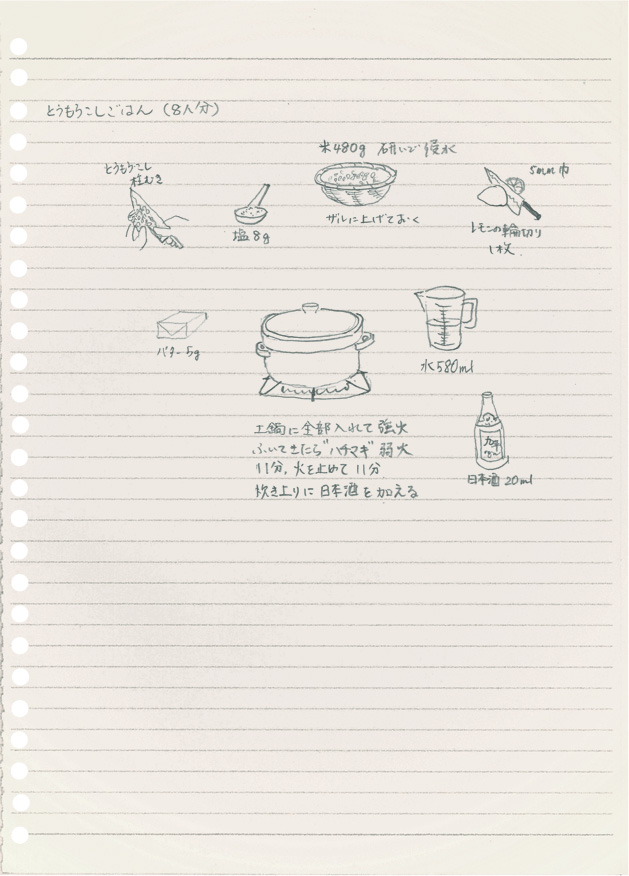 とうもろこしごはん（8人分）
米480g 研いで浸水
ザルに上げておく
とうもろこし
桂むき
塩8g
5mm巾
レモンの輪切り
1枚
バター5g
水580ml
土鍋に全部入れて強火
ふいてきたら"ハチマキ"弱火
11分，火を止めて11分
炊き上りに日本酒を加える
日本酒20ml